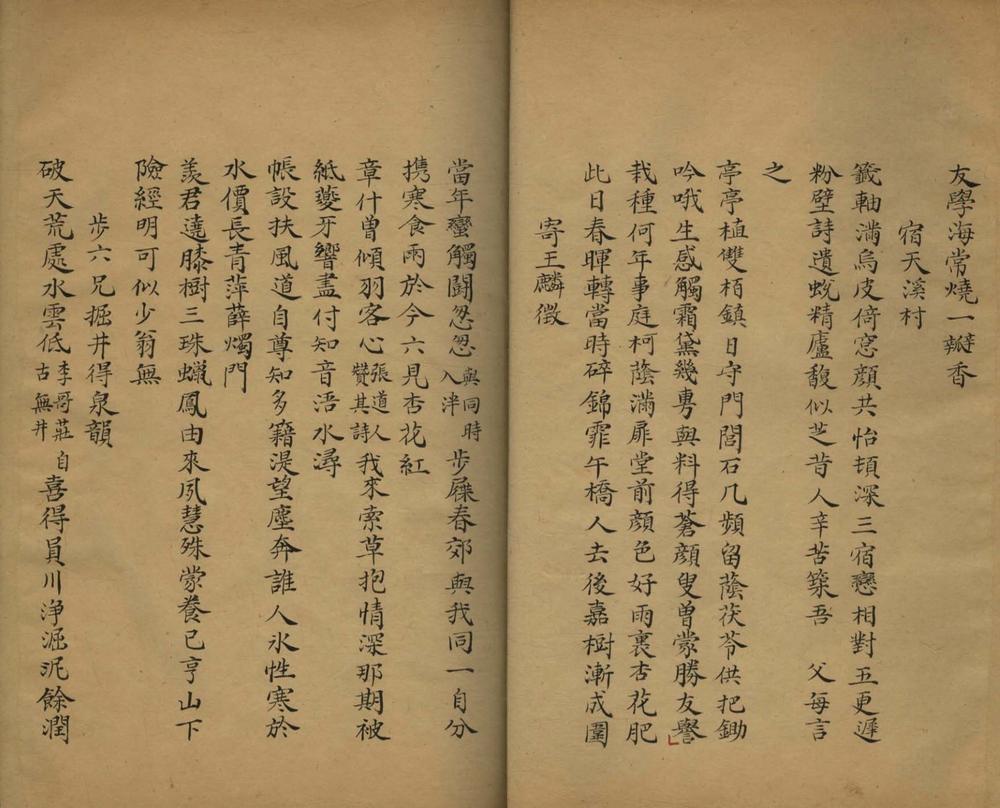 友學海常燒一瓣香
宿天溪村
籤軸滿烏皮倚窓顔共怡頓深三宿戀相對五更遲
粉壁詩遺蛻精廬馥似芝昔人辛苦築吾 父每言
之
亭亭植雙栢鎮日守門閭石几頻留蔭茯苓供把鋤
吟哦生感觸霜黛幾男與料得蒼顔叟曾蒙勝友譽
栽種何年事庭柯蔭滿扉堂前顔色好雨裏杏花肥
此日春暉轉當時碎錦霏午橋人去後嘉樹漸成圍
寄王麟徵
當年蠻觸鬪怱怱與同時入泮步屧春郊與我同一自分
攜寒食雨於今六見杏花紅
章什曾傾羽客心張道人贊其詩我來索草抱情深那期被
紙夔牙響盡付知音浯水潯
帳設扶風道自尊知多籍湜望塵奔誰人氷性寒於
水價長青萍薛燭門
羨君達膝樹三珠蠟鳳由來夙慧殊蒙養已亨山下
險經明可似少翁無
步六兄掘井得泉韻
破天荒處水雲低李哥莊自古無井喜得員川淨淈泥餘潤